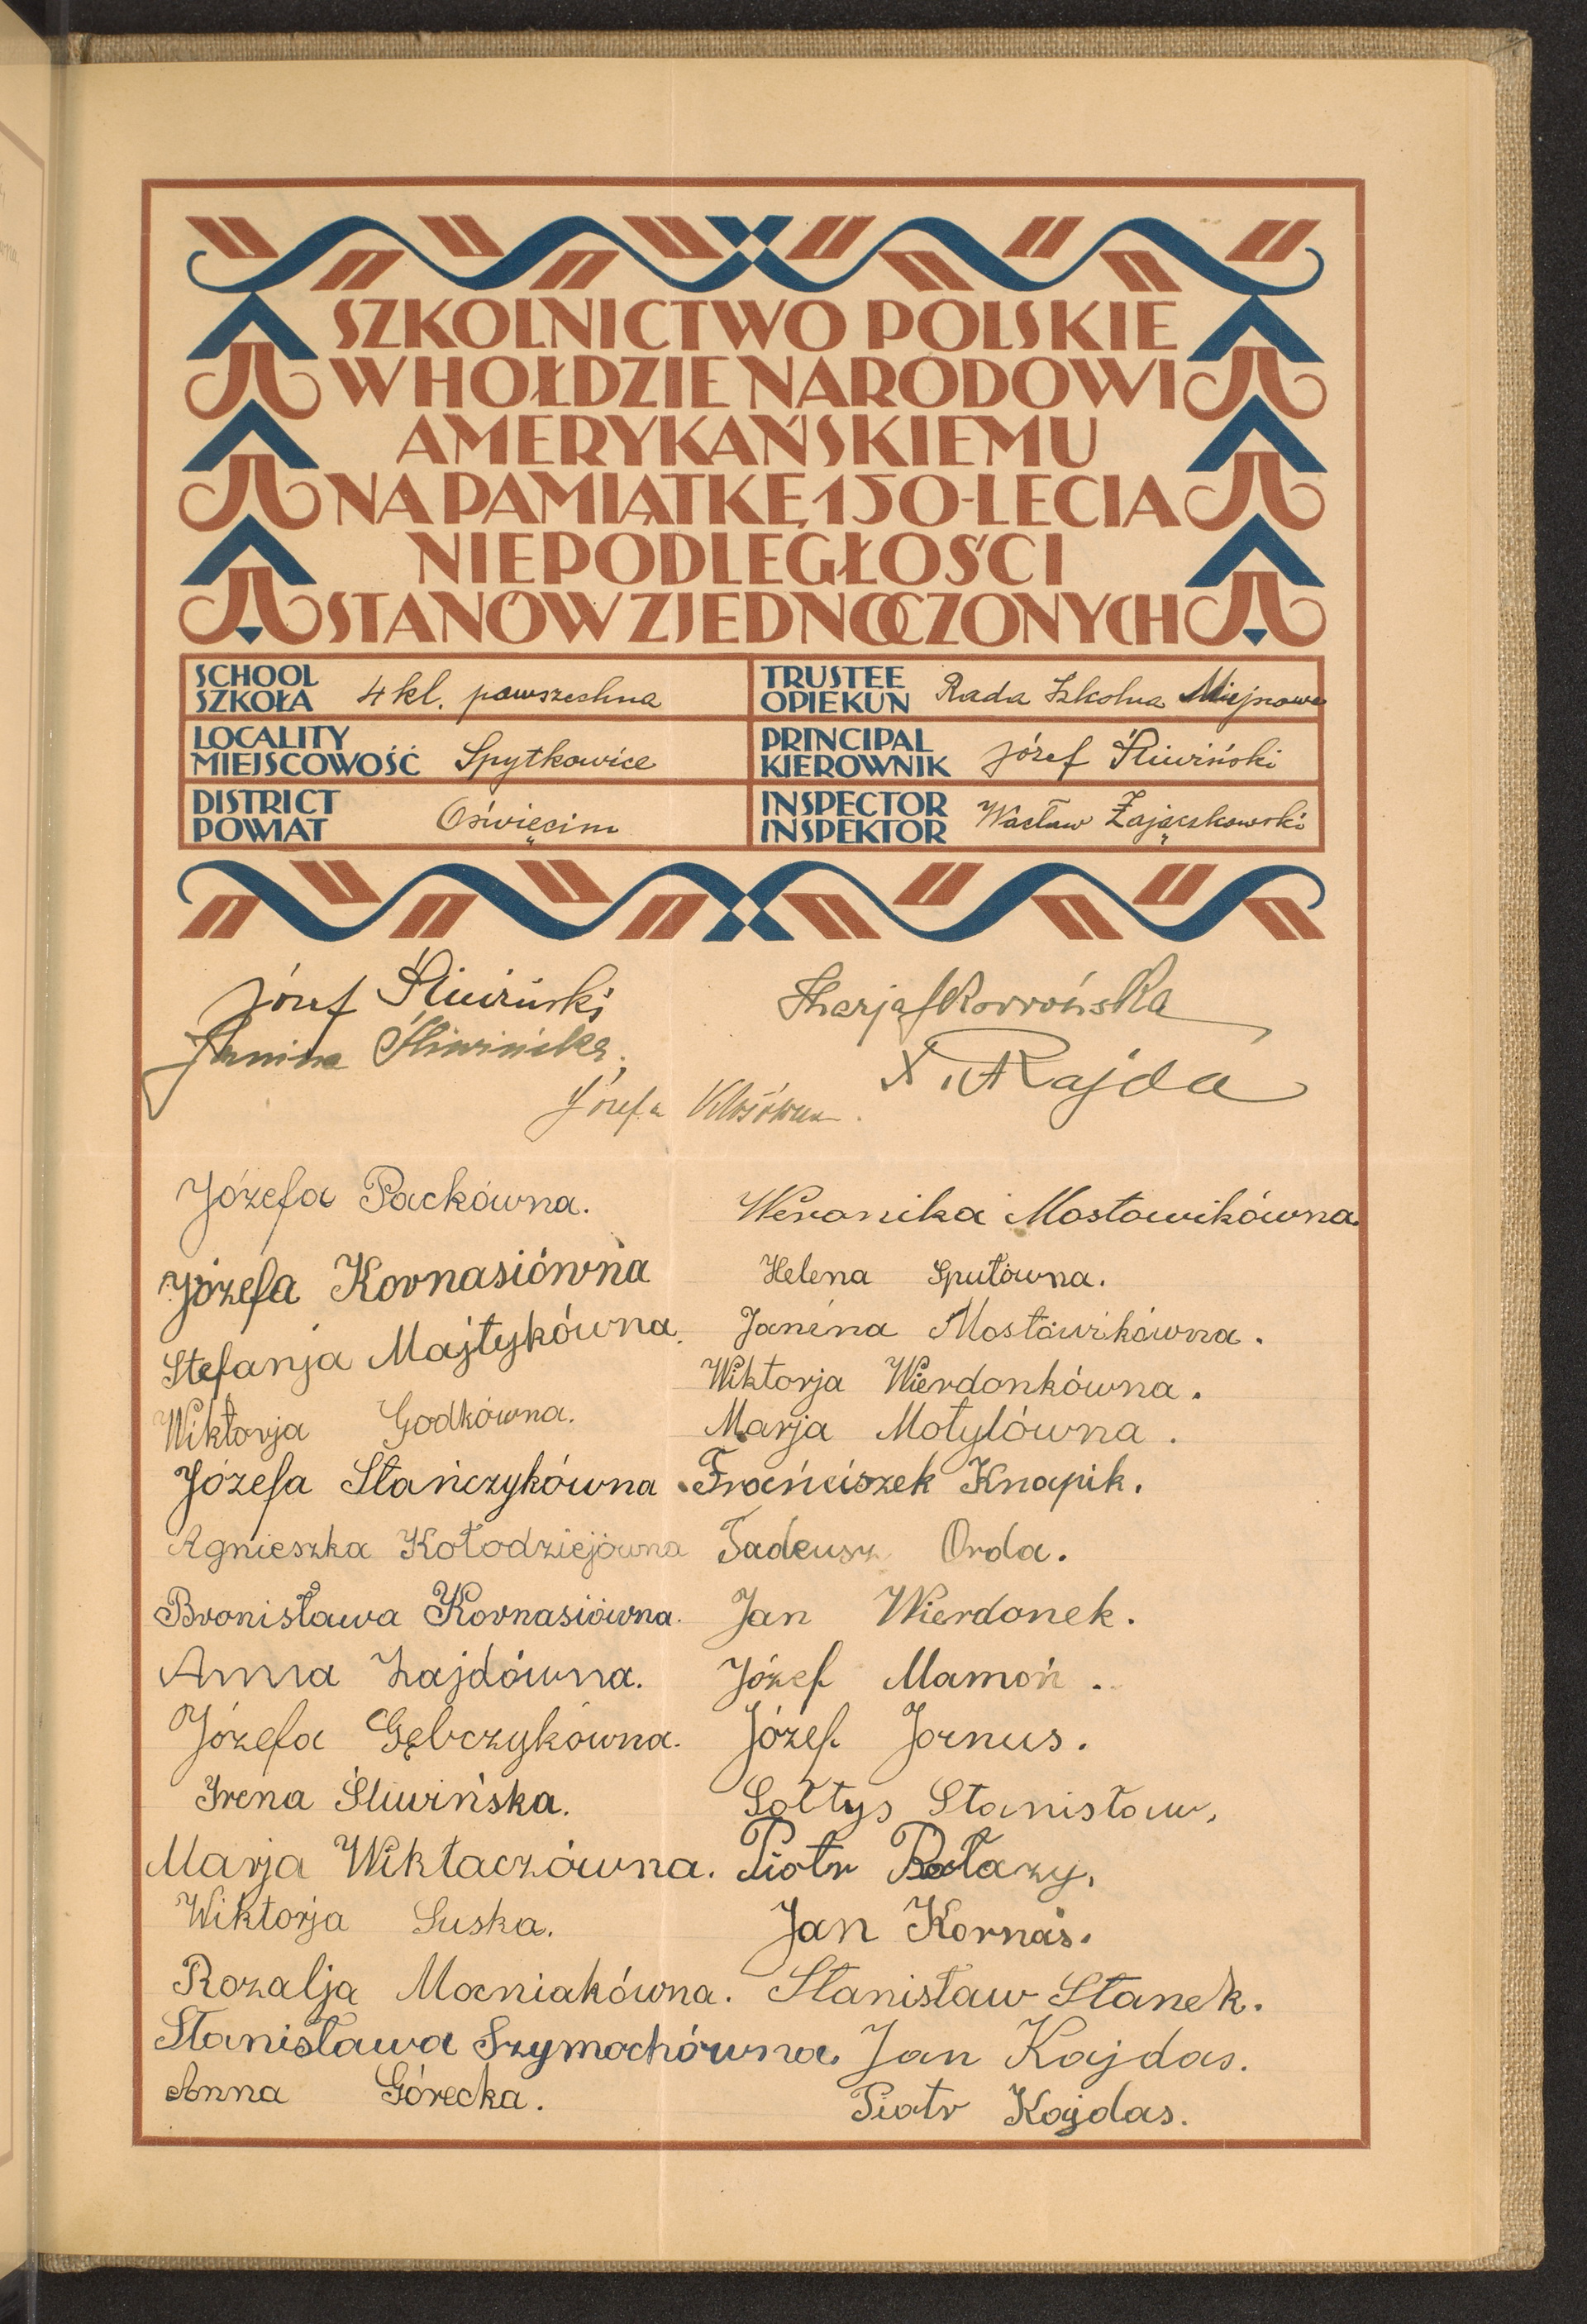 SZKOLNICTWO POLSKIE
W HOŁDZIE NARODOWI
AMERYKAŃSKIEMU
NA PAMIĄTKĘ 150-LECIA
NIEPODLEGŁOŚCI
STANÓW ZJEDNOCZONYCH
SCHOOL
SZKOŁA 4 kl. powszechna
TRUSTEE
OPIEKUN Rada Szkolna Miejscowa
LOCALITY
MIEJSCOWOŚĆ Spytkowice
PRINCIPAL
KIEROWNIK Józef Śliwiński
DISTRICT
POWIAT Oświęcim
INSPECTOR
INSPEKTOR Wacław Zajączkowski
Józef Śliwiński
Janina Śliwińska
X. A Rajda
Józefa
Józefa Packówna.
Józefa Kornasiówna
Stefanja Majtykówna.
Wiktorja Godkówna.
Józefa Stańczykówna.
Agnieszka Kołodziejówna
Bronisława Kornasiówna.
Anna Zajdówna.
Józefa Gębczykówna.
Irena Śliwińska.
Marja Wiktaczówna.
Wiktorja Suska.
Rozalja Mocniakówna.
Stanisława Szymochówna.
Anna Górecka.
Weronika Mostowikówna.
Helena Sputówna.
Janina Mostowikówna.
Wiktorja Wierdonkówna.
Marja Motylówna.
Frańciszek Knapik.
Tadeusz Orda.
Jan Wierdonek.
Józef Mamoń.
Józef Jornus.
Sołtys Stanisław.
Piotr
Jan Kornaś.
Stanisław Stanek.
Jan Kajdas.
Piotr Kajdas.